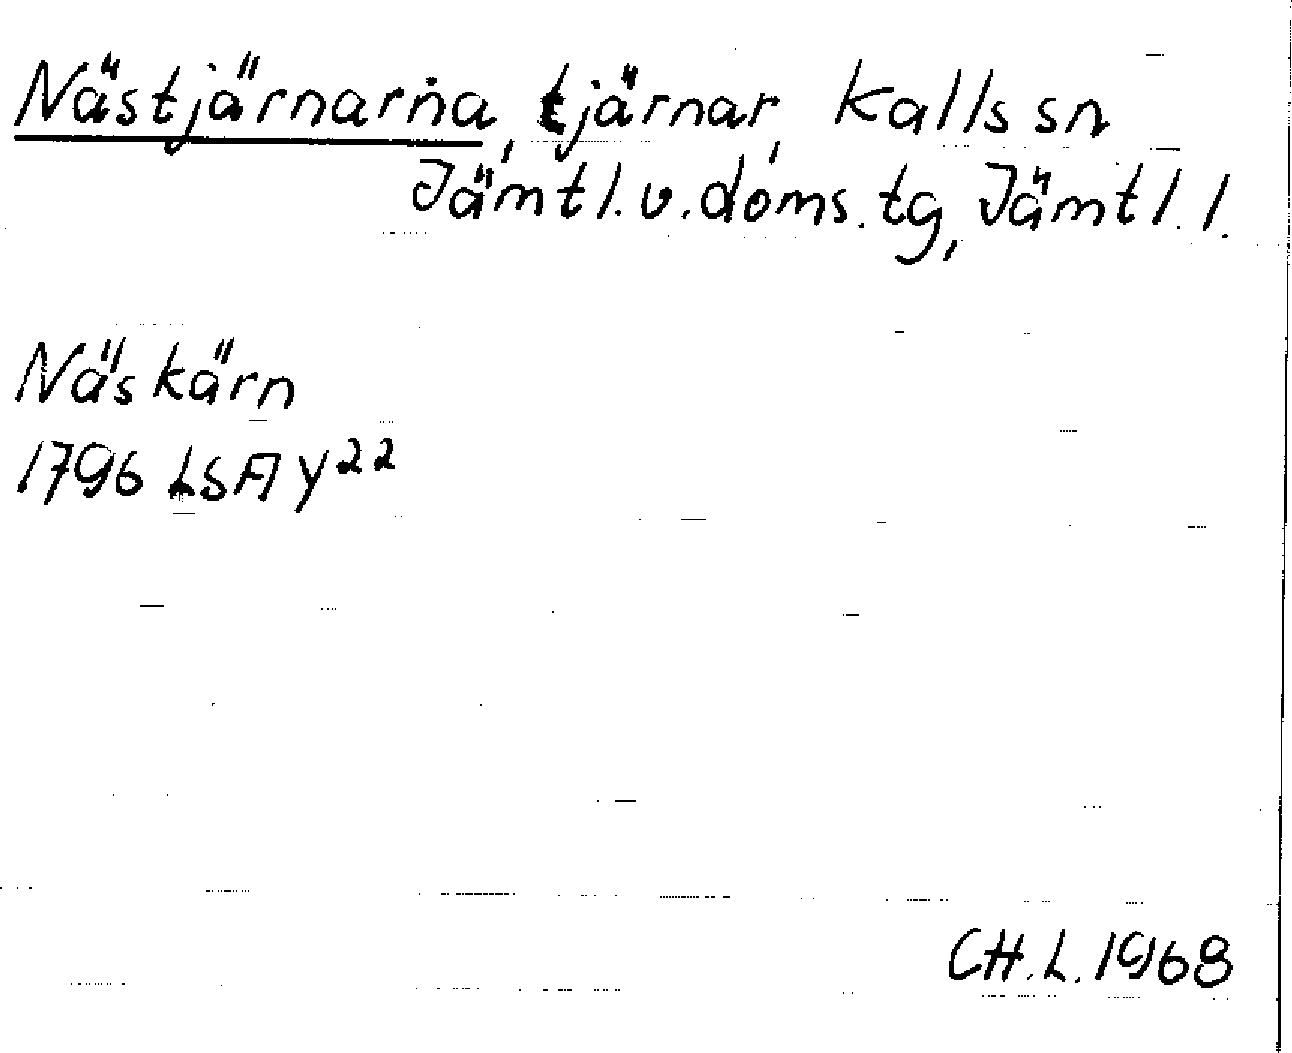 Nästjärnarna, tjärnar, Kalls sn
Jämtl.v.doms.tg, Jämtl.l.
Näskärn
1796 LSA Y22
CH.L.1968